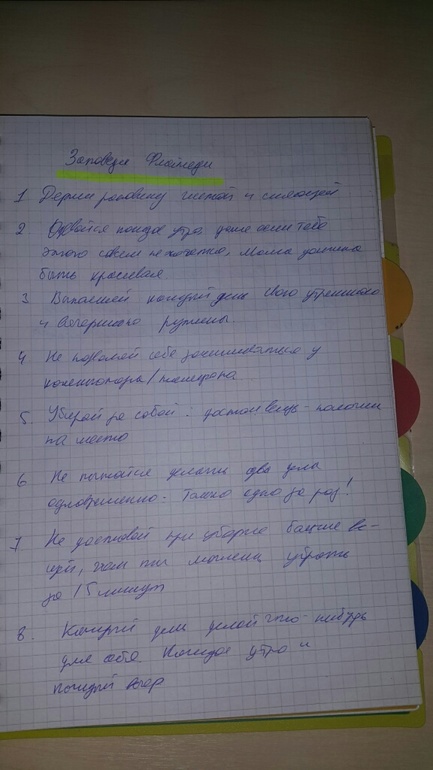 Заповеди Флайледи
1 Держи раковину чистой и сияющей
2 Одевайся каждое утро даже если тебе
этого совсем не хочется, Мама должна
быть красивая
3 Выполняй каждый день свою утреннюю
и вечернюю рутины.
4 Не позволяй себе засиживаться у
компьютера/телефона
5. Убирай за собой: достал вещь - положи
на место
6 Не пытайся делать два дела
одновременно. Только одно за раз!
7 Не доставай при уборке больше ве-
щей, чем ты можешь убрать
за 15 минут
8. Каждый день делай что-нибудь
для себя. Каждое утро и
каждый вечер